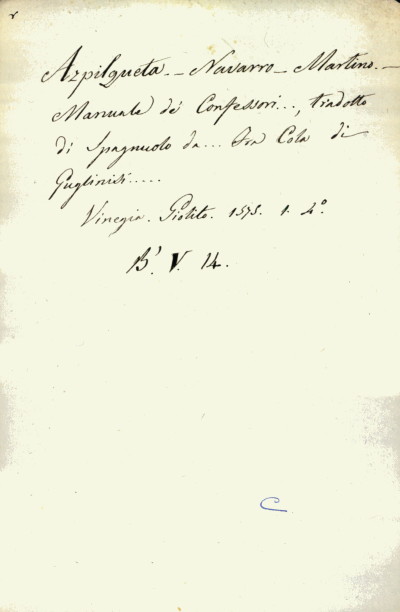 Azpilqueta - Navarro - Martino. -
Manuale de' Confessori..., tradotto
di Spagnuolo da... Fra Cola di
Guglinisi.....
Vinegia. Giolito. 1575. 1. 4°.
B'. V. 14.
C